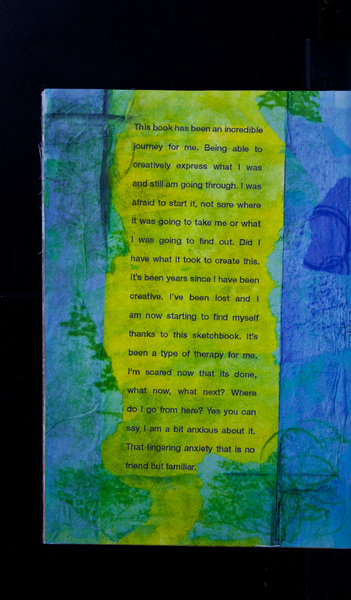 This book has been an incredible
journey for me. Being able to
creatively express what I was
and still am going through. I was
afraid to start it, not sure where
it was going to take me or what
I was going to find out. Did I
have what it took to create this.
It's been years since I have been
creative. I've been lost and I
am now starting to find myself
thanks to this sketchbook. It's
been a type of therapy for me,
I'm scared now that its done,
what now, what next? Where
do I go from here? Yes you can
say I am a bit anxious about it.
That lingering anxiety that is no
friend but familiar.